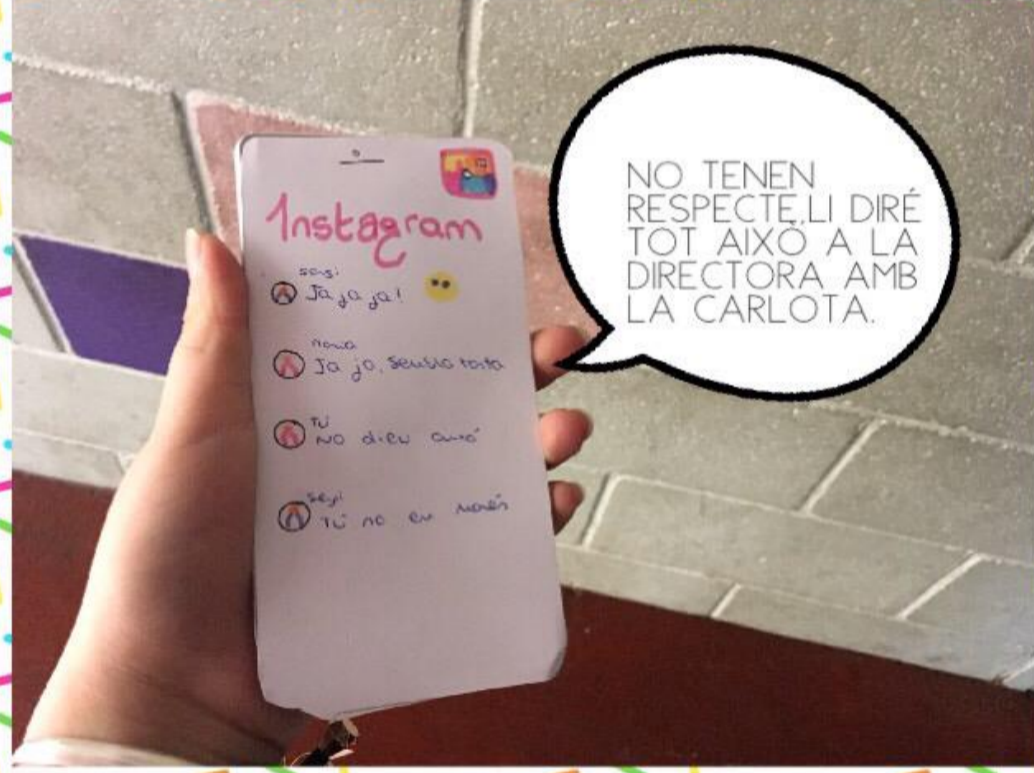 Instagram
sergi
Ja ja ja!
Ja ja, sembla tonta
TÚ
NO dieu això
sergi
TÚ no em manes
NO TENEN
RESPECTE,LI DIRÉ
TOT AIXÒ A LA
DIRECTORA AMB
LA CARLOTA.